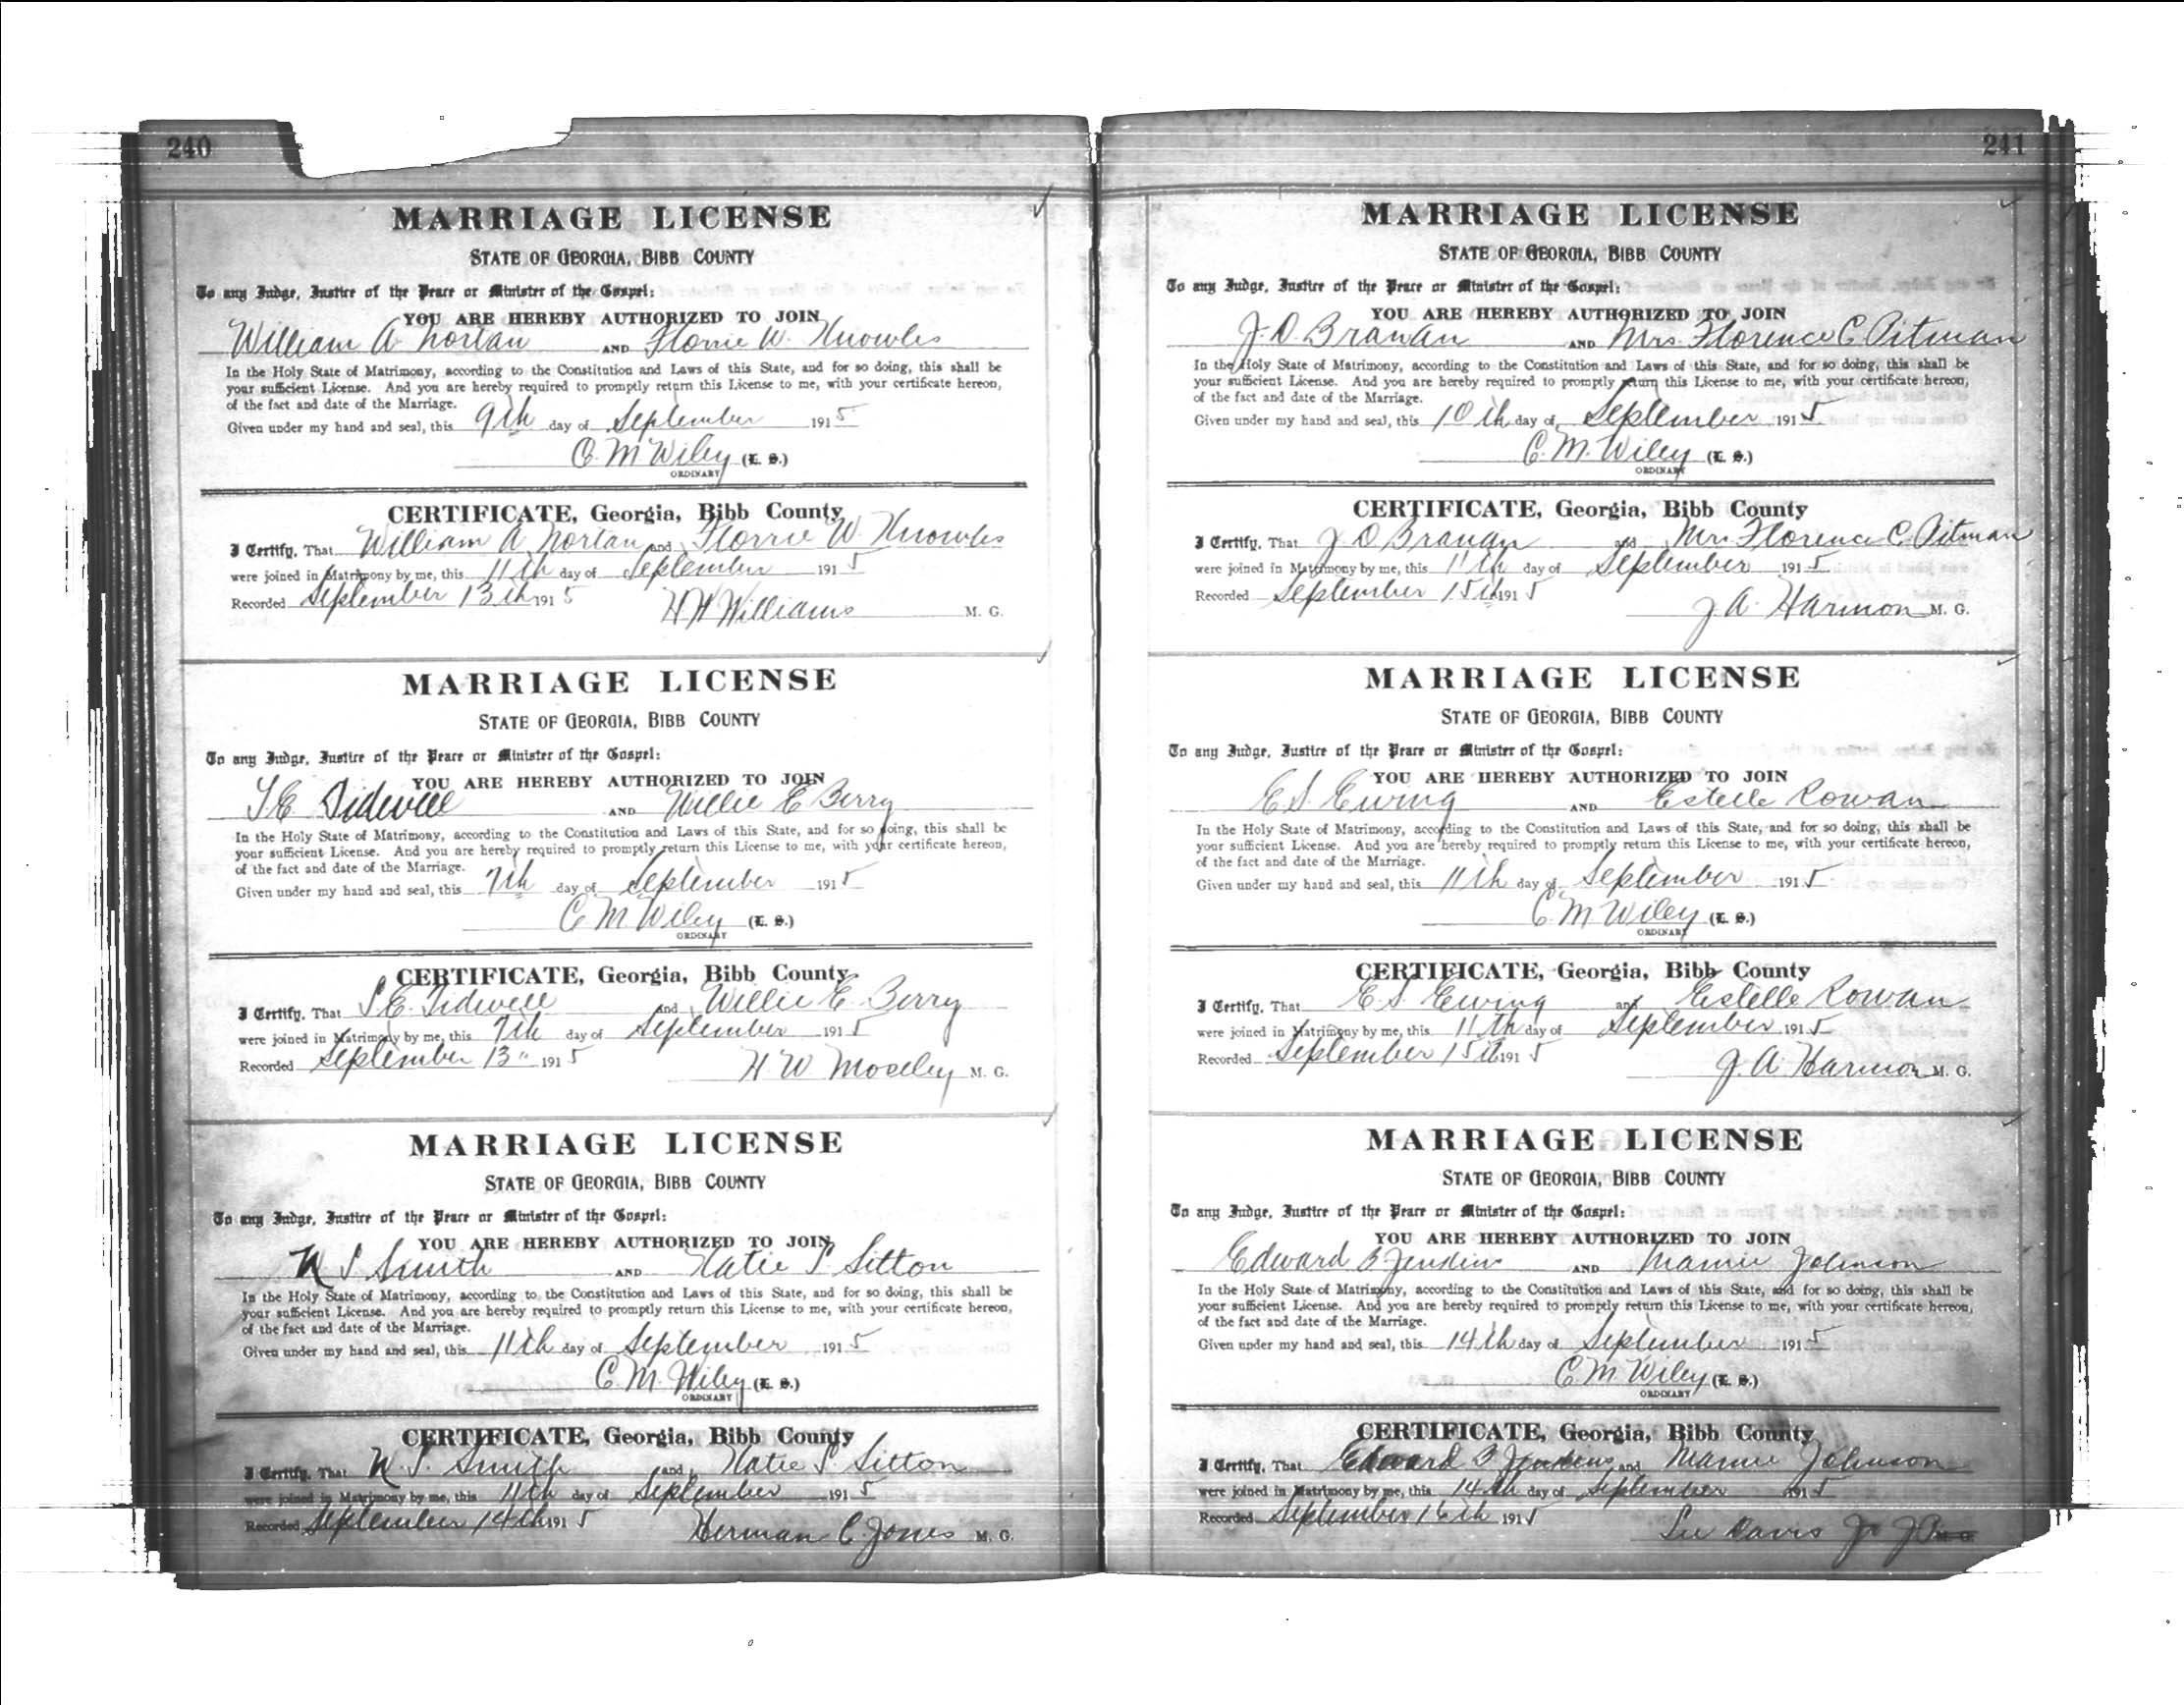 240
MARRIAGE LICENSE
STATE OF GEORGIA, BIBB COUNTY
To any Judge, Justice of the Peace or Minister of the Gospel:
YOU ARE HEREBY AUTHORIZED TO JOIN
William A. Nortan AND Florrie W. Knowles
In the Holy State of Matrimony, according to the Constitution and Laws of this State, and for so doing, this shall be
your sufficient License. And you are hereby required to promptly return this License to me, with your certificate hereon,
of the fact and date of the Marriage.
Given under my hand and seal, this 9th day of September 1915
C. M Wiley (L. S.)
ORDINARY
CERTIFICATE, Georgia, Bibb County
I Certify, That William A Nortan and Florrie W. Knowles
were joined in Matrimony by me, this 11th day of September 1915
Recorded September 13th 1915
H H Williams M. G.
MARRIAGE LICENSE
STATE OF GEORGIA, BIBB COUNTY
To any Judge, Justice of the Peace or Minister of the Gospel:
YOU ARE HEREBY AUTHORIZED TO JOIN
E Tidwell AND Willie E Berry
In the Holy State of Matrimony, according to the Constitution and Laws of this State, and for so doing, this shall be
your sufficient License. And you are hereby required to promptly return this License to me, with your certificate hereon,
of the fact and date of the Marriage.
Given under my hand and seal, this 7th day of September 1915
C M Wiley (L. S.)
ORDINARY
CERTIFICATE, Georgia, Bibb County
I Certify, That E. Tidwell and Willie E. Berry
were joined in Matrimony by me, this 7th day of September 1915
Recorded September 13" 1915
H W Moseley M. G.
MARRIAGE LICENSE
STATE OF GEORGIA, BIBB COUNTY
To any Judge, Justice of the Peace or Minister of the Gospel:
YOU ARE HEREBY AUTHORIZED TO JOIN
Smith AND Katie Sitton
In the Holy State of Matrimony, according to the Constitution and Laws of this State, and for so doing, this shall be
your sufficient License. And you are hereby required to promptly return this License to me, with your certificate hereon,
of the fact and date of the Marriage.
Given under my hand and seal, this 11th day of September 1915
C. M. Wiley (L. S.)
ORDINARY
CERTIFICATE, Georgia, Bibb County
I Certify, That Smith and Katie Sitton
were joined in Matrimony by me, this 11th day of September 1915
Recorded September 14th 1915
Herman C. Jones M. G.
241
MARRIAGE LICENSE
STATE OF GEORGIA, BIBB COUNTY
To any Judge, Justice of the Peace or Minister of the Gospel:
YOU ARE HEREBY AUTHORIZED TO JOIN
J. O. Branan AND Mrs. Florence C. Pitman
In the Holy State of Matrimony, according to the Constitution and Laws of this State, and for so doing, this shall be
your sufficient License. And you are hereby required to promptly return this License to me, with your certificate hereon,
of the fact and date of the Marriage.
Given under my hand and seal, this 10th day of September 1915
C. M. Wiley (L. S.)
ORDINARY
CERTIFICATE, Georgia, Bibb County
I Certify, That J. O Branan and Mrs Florence C. Pitman
were joined in Matrimony by me, this 11th day of September 1915
Recorded September 15th 1915
J A. Harmon M. G.
MARRIAGE LICENSE
STATE OF GEORGIA, BIBB COUNTY
To any Judge, Justice of the Peace or Minister of the Gospel:
YOU ARE HEREBY AUTHORIZED TO JOIN
E S. Ewing AND Estelle Rowan
In the Holy State of Matrimony, according to the Constitution and Laws of this State, and for so doing, this shall be
your sufficient License. And you are hereby required to promptly return this License to me, with your certificate hereon,
of the fact and date of the Marriage.
Given under my hand and seal, this 11th day of September 1915
C. M Wiley (L. S.)
ORDINARY
CERTIFICATE, Georgia, Bibb County
I Certify, That E S Ewing and Estelle Rowan
were joined in Matrimony by me, this 11th day of September 1915
Recorded September 15th 1915
J. A. Harmon M. G.
MARRIAGE LICENSE
STATE OF GEORGIA, BIBB COUNTY
To any Judge, Justice of the Peace or Minister of the Gospel:
YOU ARE HEREBY AUTHORIZED TO JOIN
Edward B Jenkins AND Mamie Johnson
In the Holy State of Matrimony, according to the Constitution and Laws of this State, and for so doing, this shall be
your sufficient License. And you are hereby required to promptly return this License to me, with your certificate hereon,
of the fact and date of the Marriage.
Given under my hand and seal, this 14th day of September 1915
C. M Wiley (L. S.)
ORDINARY
CERTIFICATE, Georgia, Bibb County
I Certify, That Edward B Jenkins and Mamie Johnson
were joined in Matrimony by me, this 14th day of September 1915
Recorded September 16th 1915
Lee Davis Jr JP M. G.